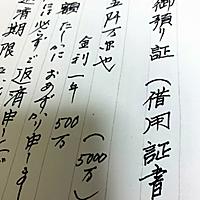 御預り証(借用証書
五阡万円也
(5000万)
金利一年 500万
額たしかにおあずかり申します
に必ずご返済申し
済期限